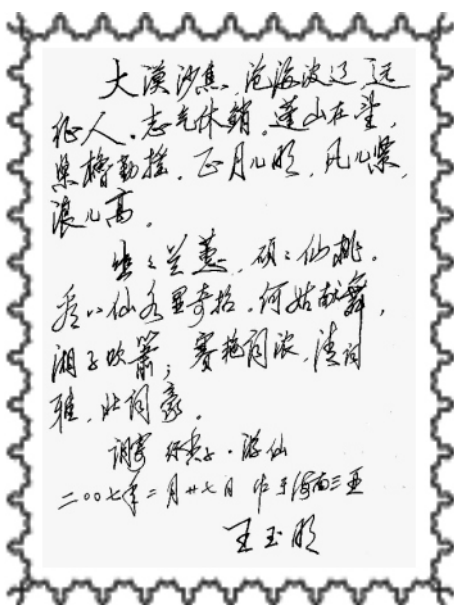 大漠沙焦,沧海波辽,远
征人,志气休銷,蓬山在望,
桨橹勤摇.正月儿明,风儿紧,
浪儿高.
兰蕙,硕々仙桃.
看八仙各奇招.何姑献舞,
湘子吹箫;赛艳词浓,清词
雅,壮词豪.
调寄 行香子·游仙
二〇〇七年二月廿七日 作于海南三亚
王玉明